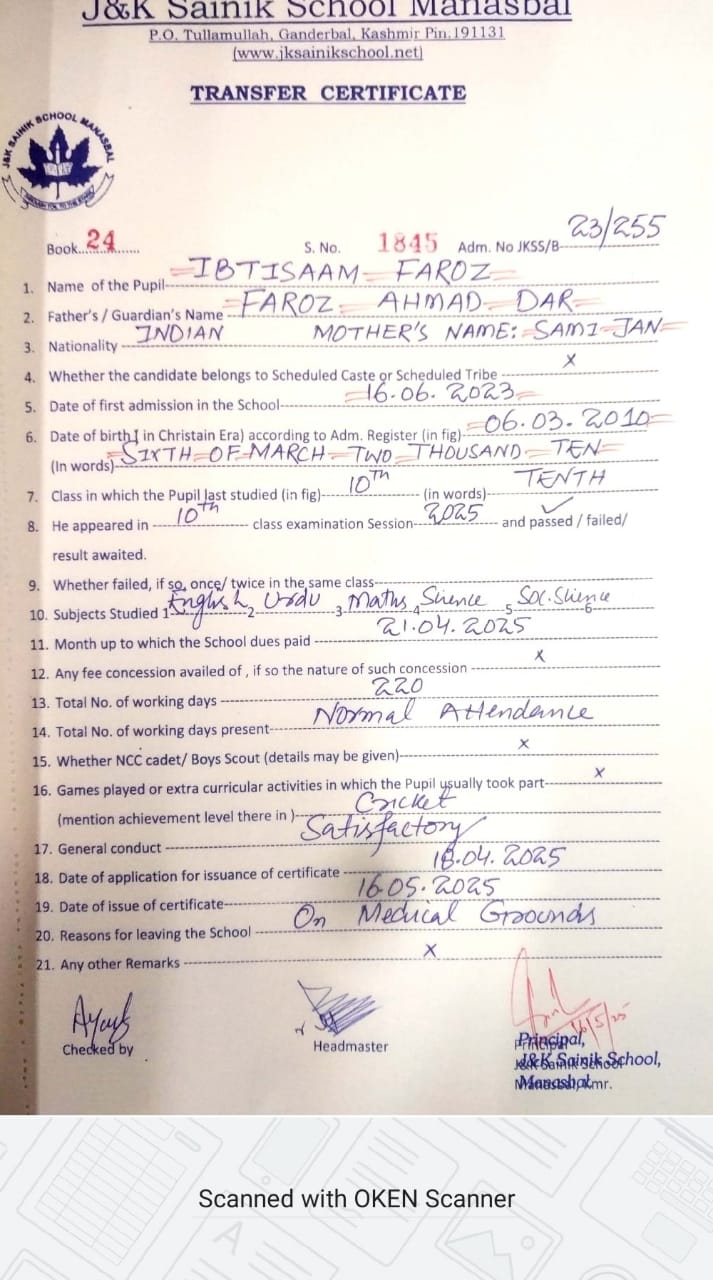 J&K Sainik School Manasbal
P.O. Tullamullah, Ganderbal, Kashmir Pin.191131
(www.jksainikschool.net)
TRANSFER CERTIFICATE
J&K SAINIK SCHOOL MANASBAL
Book...24...... S. No. 1845 Adm. No JKSS/B- 23/255
1. Name of the Pupil- IBTISAAM FAROZ
2. Father's / Guardian's Name - FAROZ AHMAD DAR
3. Nationality - INDIAN MOTHER'S NAME: SAMI-JAN
4. Whether the candidate belongs to Scheduled Caste or Scheduled Tribe - x
5. Date of first admission in the School- 16.06.2023
6. Date of birth( in Christain Era) according to Adm. Register (in fig)- 06.03.2010
(In words)- SIXTH OF MARCH TWO THOUSAND TEN
7. Class in which the Pupil last studied (in fig)- 10TH (in words)- TENTH
8. He appeared in 10th class examination Session- 2025 and passed / failed/
result awaited.
9. Whether failed, if so, once/ twice in the same class-
10. Subjects Studied 1- English 2- Urdu 3- Maths 4- Science 5- Soc. Science 6-
11. Month up to which the School dues paid - 21.04.2025
12. Any fee concession availed of , if so the nature of such concession - x
13. Total No. of working days - 220
14. Total No. of working days present- Normal Attendance
15. Whether NCC cadet/ Boys Scout (details may be given)- x
16. Games played or extra curricular activities in which the Pupil usually took part- x
(mention achievement level there in )- Cricket
17. General conduct - Satisfactory
18. Date of application for issuance of certificate - 18.04.2025
19. Date of issue of certificate- 16.05.2025
20. Reasons for leaving the School - On Medical Grounds
21. Any other Remarks - x
16/5/25
Checked by Headmaster Principal,
J&K Sainik School,
Manasbal, Kmr.
Scanned with OKEN Scanner